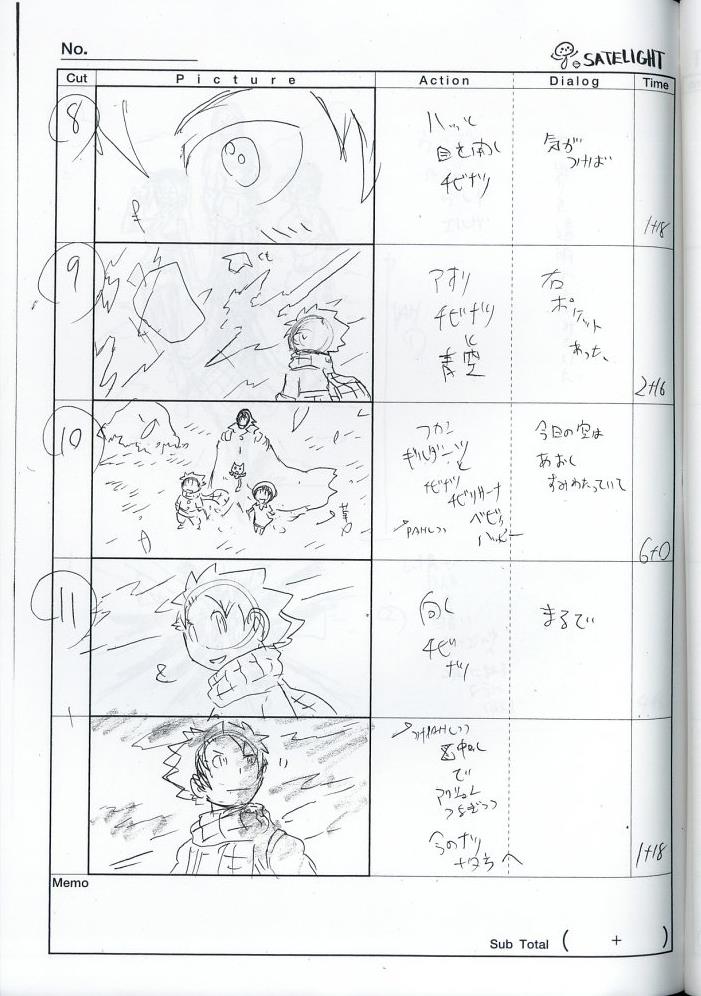 No.
SATELIGHT
Cut Picture Action Dialog Time
8
ハッと
目を開く
チビナツ
気が
つけば
1+18
9
アオリ
チビナツ
に
青空
右
ポケット
あった、
2+16
10
フカン
ギルダーツ
と
チビナツ
チビリサーナ
ベビィ
ハッピー
今日の空は
あおく
すみわたっていて
6+0
11
向く
チビ
ナツ
まるで
で
つなぎつつ
今のナツ
1+18
Memo
Sub Total ( + )